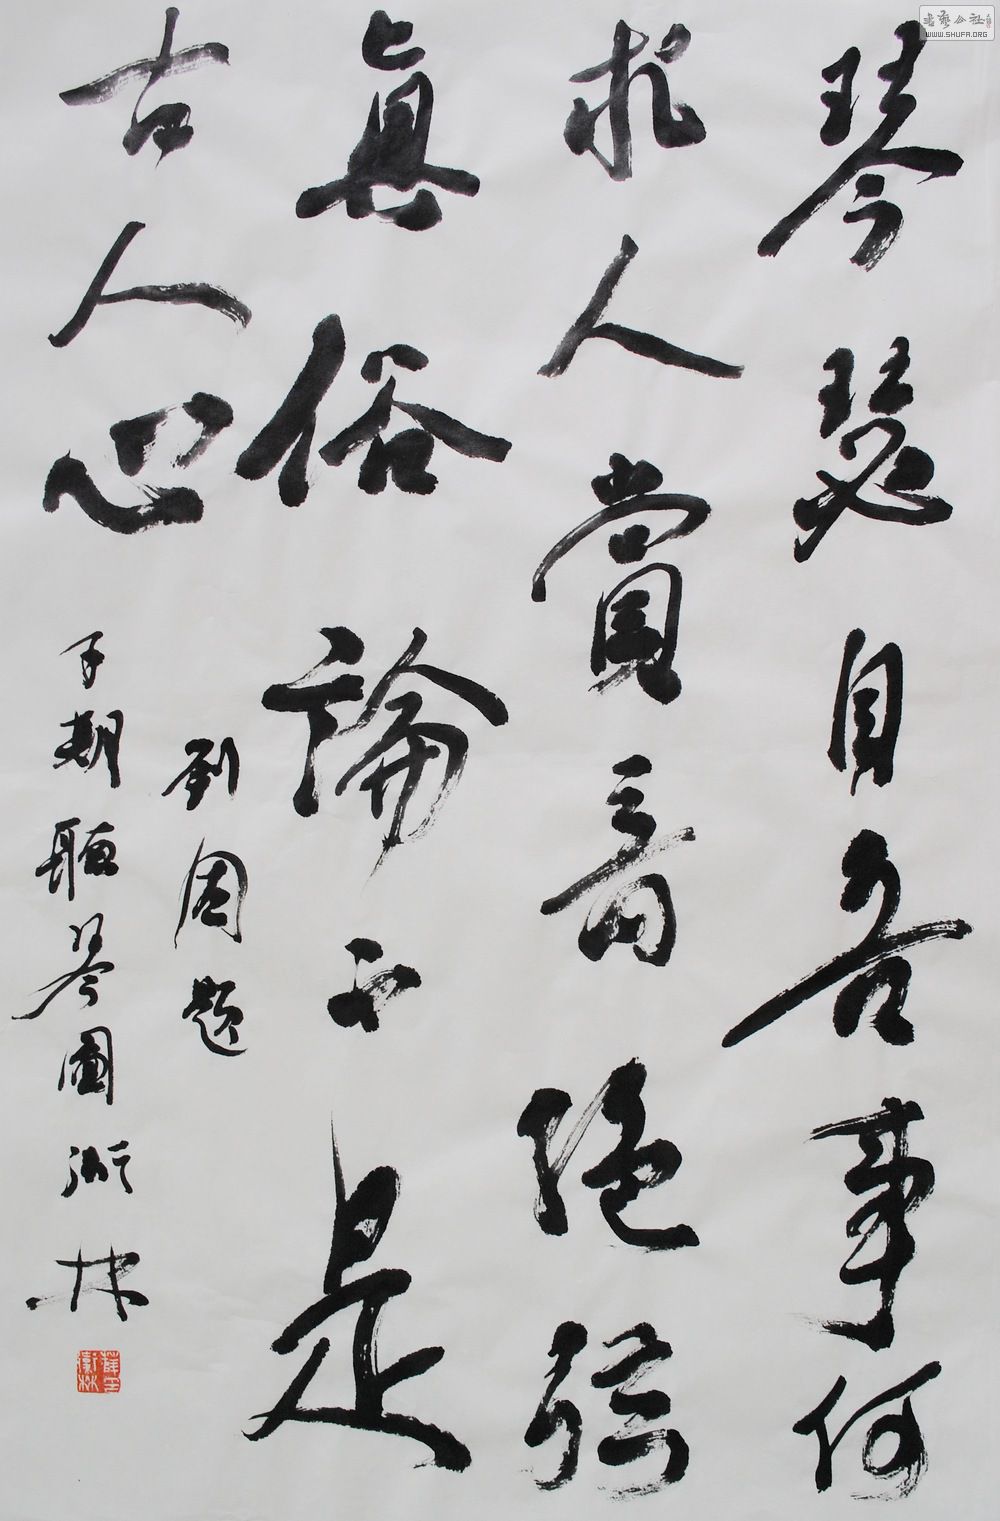 琴瑟自吾事何
求人賞音絕弦
真俗論不是
古人心
劉因題
子期聽琴圖
林
書藝公社
WWW.SHUFA.ORG